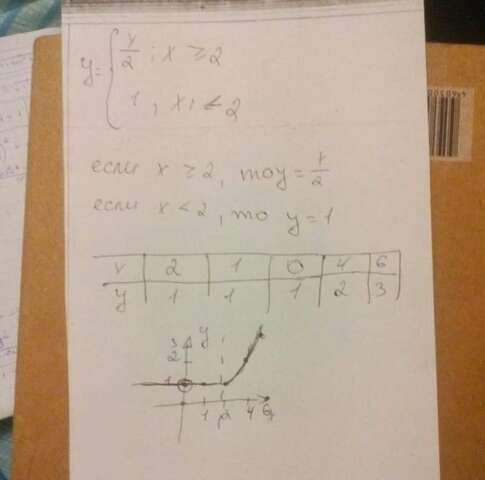 y = { x/2 ; x ≥ 2
1 , x, < 2
если x ≥ 2, то y = x/2
если x < 2, то y = 1
x | 2 | 1 | 0 | 4 | 6
y | 1 | 1 | 1 | 2 | 3
3 y
2
1
1 2 4 6